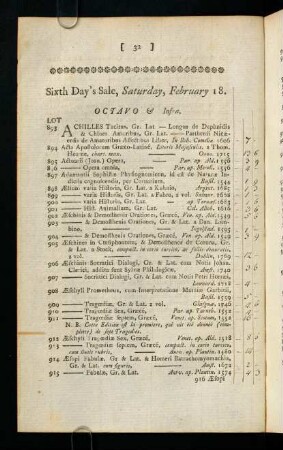 [ 32 ]
Sixth Day's Sale, Saturday, February 18.
OCTAVO & Infra.
LOT
893 ACHILLES Tacitus, Gr. Lat. — Longus de Daphnidis
& Chloes Amoribus, Gr. Lat. — Parthenii Nicæ-
ensis de Amatoriis Affectibus Liber, In Bib. Comelin 1606
894 Acta Apostolorum Græco-Latinè, Literis Majusculis, a Thom.
Hearne, chart. max. Oxon. 1715
895 Actuarii (Joan.) Opera, Par. ap. Ald. 1556
896 Opera omnia, Par. ap. Morel. 1556
897 Adamantii Sophistæ Physiognomicon, id est de Naturæ In-
diciis cognoscendis, per Cornarium, Basil. 1544
898 Æliani varia Historia, Gr. Lat. a Kuhnio, Argent. 1685
899 varia Historia, Gr. Lat. a Fabro, Salm. 1668
900 varia Historia, Gr. Lat. ap Tornæs. 1625
901 Hist. Animalium, Gr. Lat. Col. Allob. 1616
902 Æschinis & Demosthenis Orationes, Græcè, Ven. ap. Ald. 1549
903 & Demosthenis Orationes, Gr. & Lat. a Dan.
Ingolstad. 1595
904 & Demosthenis Orationes, Græcè, Ven. ap. Ald. 1549
905 Æschines in Ctesiphontem, & Demosthenes de Corona, Gr.
& Lat. a Stock,
2 vol. Dublin, 1769
906 Æschinis Socratici Dialogi, Gr. & Lat. cum Notis Joan.
Clerici, additæ sunt Sylvæ Philologicæ, Amst. 1740
907 Socratici Dialogi, Gr. & Lat. cum Notis Petri Horrei,
Leovard. 1718
908 Æschyli Prometheus, cum Interpretatione Matthiæ Garbitii,
Basil. 1559
909 Tragœdiæ, Gr. & Lat. 2 vol. Glasguæ, 1746
910 Tragœdiæ Sex, Græcè, Par ap Turneb. 1552
911 Tragœdiæ septem, Græcè, Venet. ap. Scotum, 1552
N. B. Cette Edition est la premiere, qui ait été donnée (com-
plette) de sept Tragedies.
912 Æschyli Tragœdiæ Sex, Græcè, Venet. ap. Ald. 1518
913 Tragœdiæ septem, Græcè, compact. in corio turcico,
cum lineis rubris, Antv. ap. Plantin. 1580
914 Æsopi Fabulæ, Gr. & Lat. & Homeri Batrachomyomachia,
Gr. & Lat. cum figuris, Amst. 1672
915 Fabulæ, Gr. & Lat. Antv. ap. Plantin. 1574
916 Æsopi